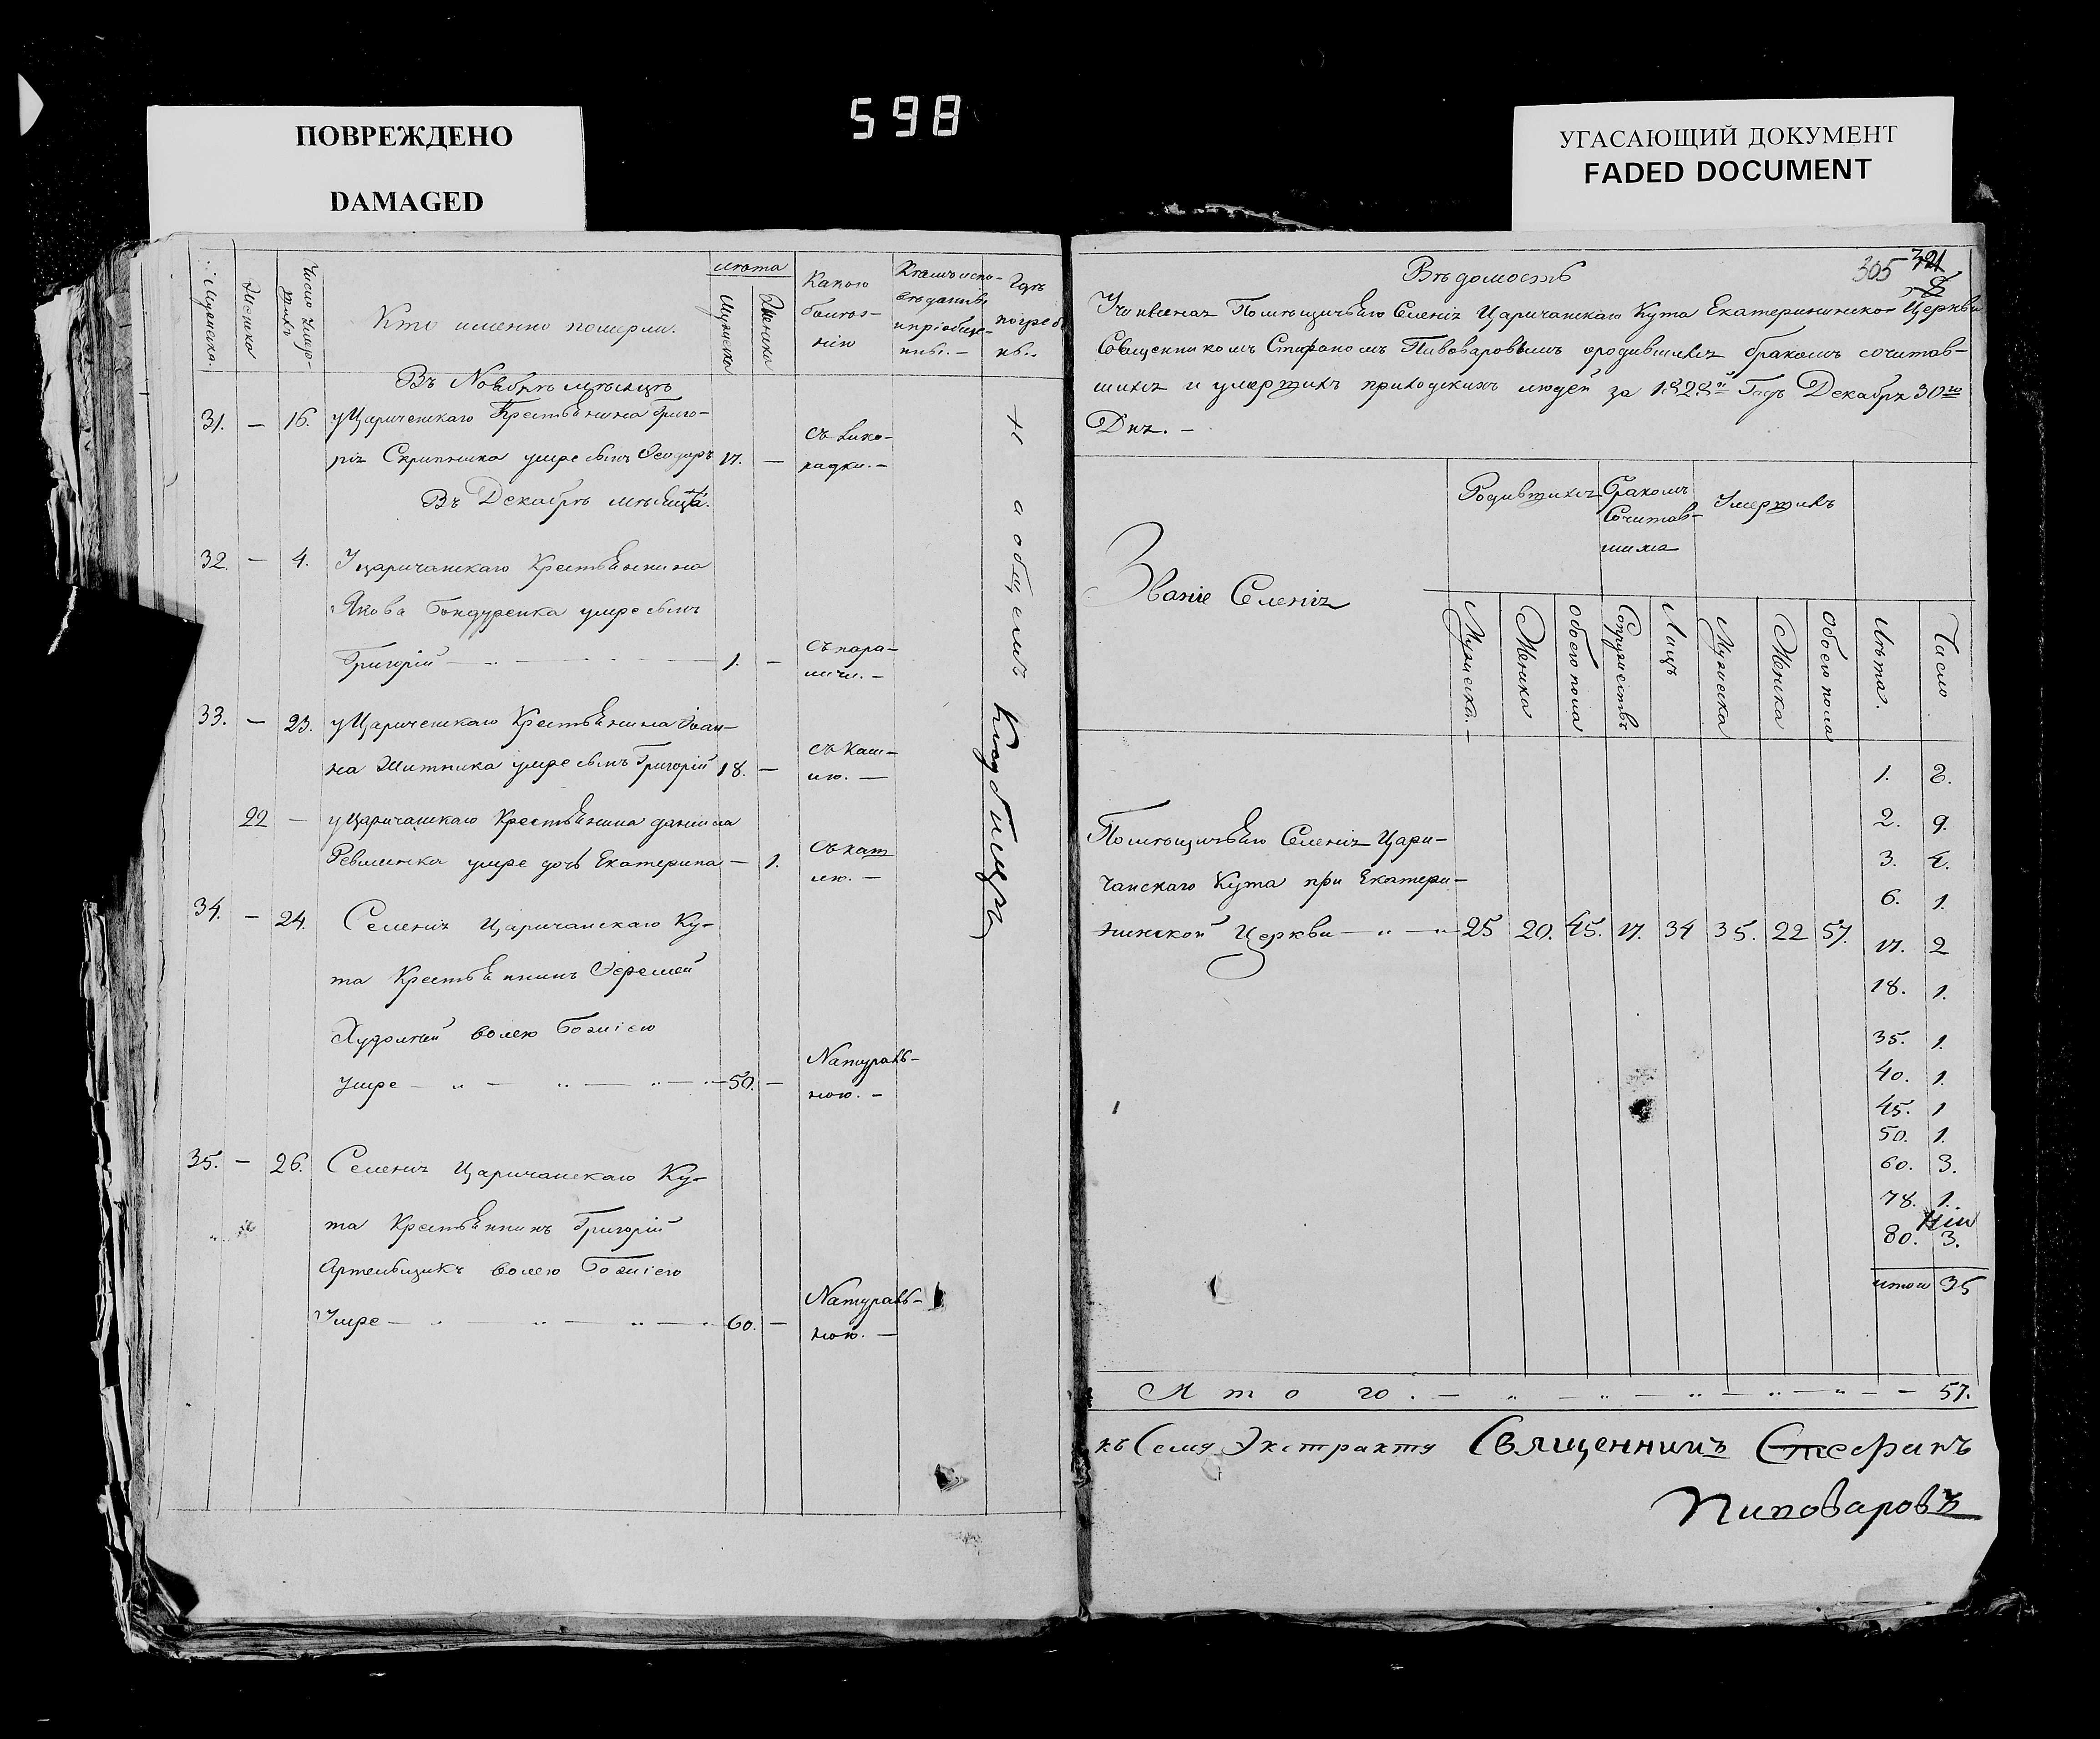 598
ПОВРЕЖДЕНО
DAMAGED
УГАСАЮЩИЙ ДОКУМЕНТ
FADED DOCUMENT
Мужеска.
Женска
Число умер-
шихъ
Кто именно померли.
лѣта
Мужеска
Женска
Какою
болѣз-
нію
Кѣмъ испо-
вѣданы
и пріобще-
ны. –
Гдѣ
погреб
ны.
Въ Ноябрѣ мѣсяцѣ
31. – 16. у Цариченскаго Крестьянина Григо-
рія Скрипника умре сынъ Ѳеодоръ 17. – съ лихо-
радки. –
Въ Декабрѣ мѣсяцѣ.
32. – 4. У Царичанскаго Крестьянина
Якова Бондуренка умре сынъ
Григорій 1. – съ пара-
личи. –
33. – 23. у Цариченскаго Крестьянина Іоан-
на Житника умре сынъ Григорій 18. – съ каш-
лю. –
22 – у Царичанскаго Крестьянина Данила
умре дочь Екатерина – 1. съ каш
лю. –
34. – 24. Селенія Царичанскаго Ку-
та Крестьянинъ Іеремей
волею Божіею
Умре 50. – Натураль-
ною. –
35. – 26. Селенія Царичанскаго Ку-
та Крестьянинъ Григорій
волею Божіею
Умре 60. – Натураль-
ною. –
На общемъ кладбищи
305 321
Вѣдомость
Учиненая Помѣщичьяго Селенія Царичанскаго Кута Екатерининской Церкви
Священникомъ Стефаномъ Пивоваровымъ о родившихся бракомъ сочитав-
шихся и умершихъ приходскихъ людей за 1828й Годъ Декабря 30го
Дня. –
Званіе Селенія
Родившихся
Бракомъ
Сочитав-
шихся
Умершихъ
Мужеска. –
Женска
Обоего пола
Супружествъ
Лицъ
Мужеска
Женска
Обоего пола
Лѣта.
Число
Помѣщичьяго Селенія Цари-
чанскаго Кута при Екатери-
нинской Церкви 25 20. 45. 17. 34 35. 22 57.
1. 2.
2. 9.
3.
6. 1.
17. 2
18. 1.
35. 1.
40. 1.
45. 1
50. 1.
60. 3.
78. 1.
80. 3.
итого 35
Итого. – 57.
къ Сему Экстракту Священникъ Стефанъ
Пивоваровъ